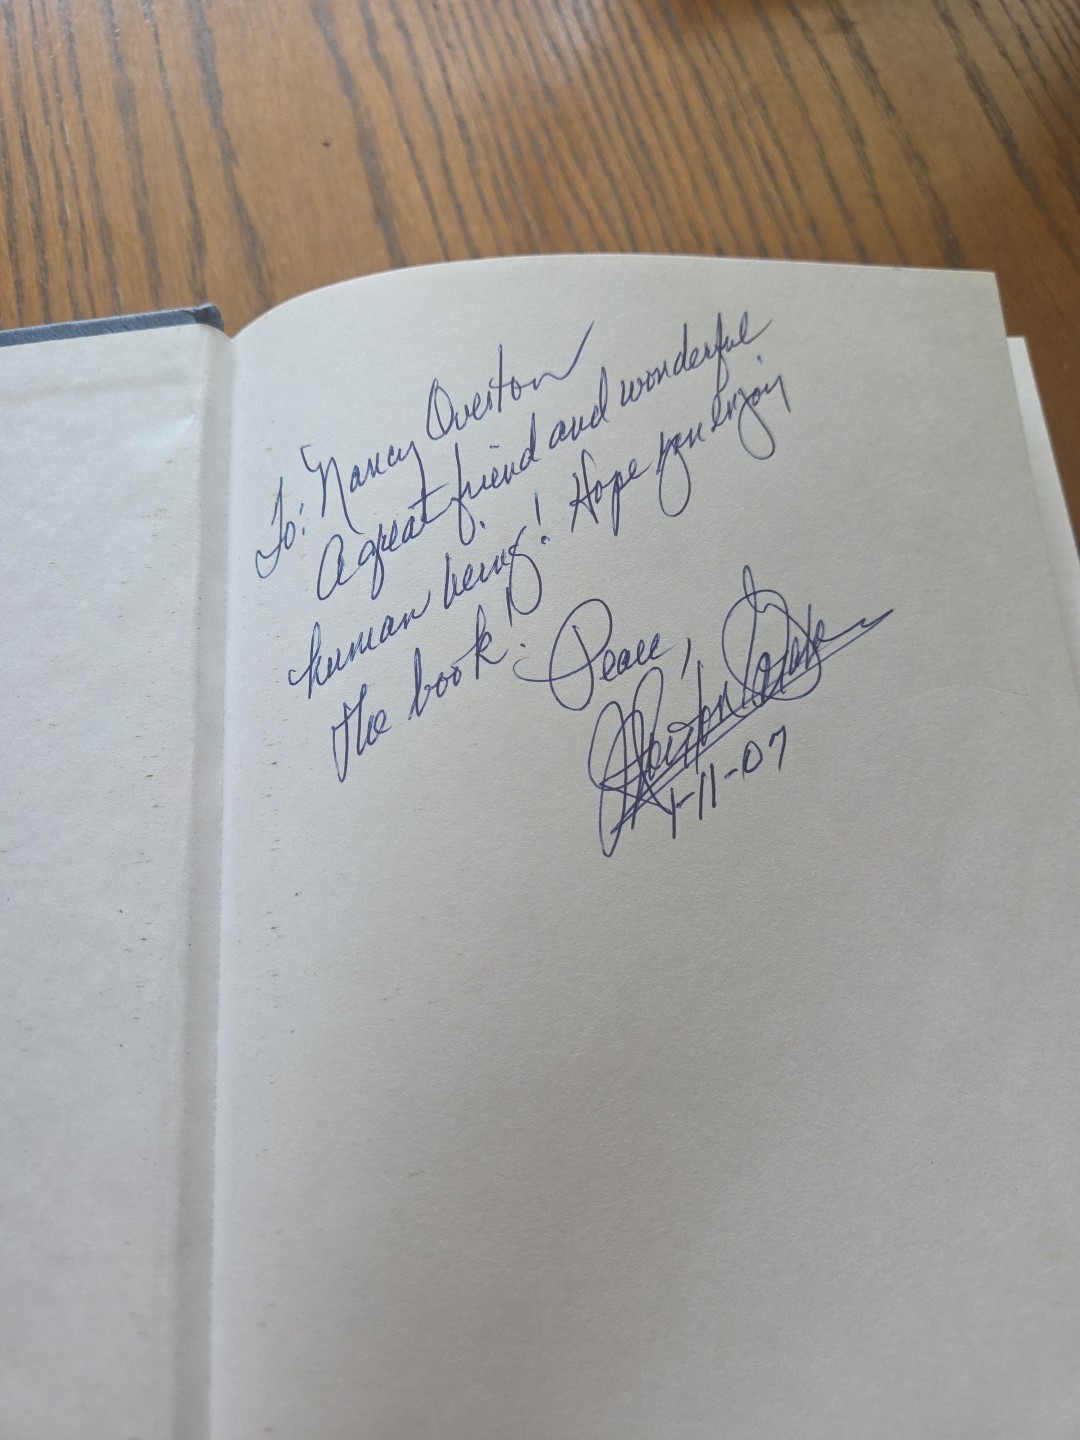 To: Nancy Overton
A great friend and wonderful
human being! Hope you enjoy
the book!
Peace,
1-11-07